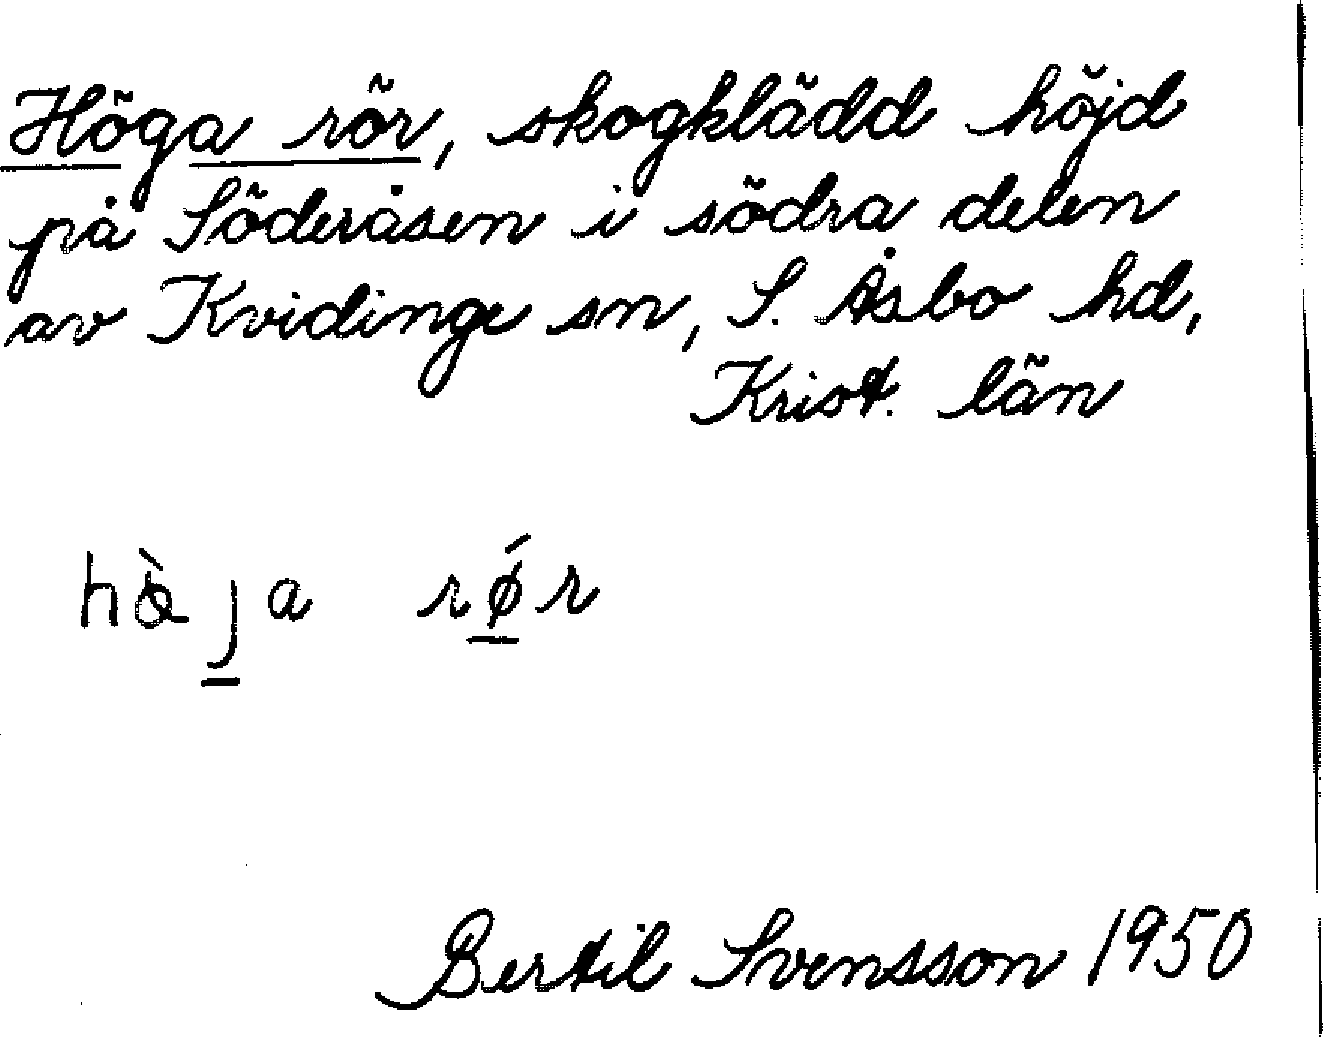 Höga rör, skogklädd höjd
på Söderåsen i södra delen
av Kvidinge sn, S. Åsbo hd,
Krist. län
hæ̀ja rǿr
Bertil Svensson 1950